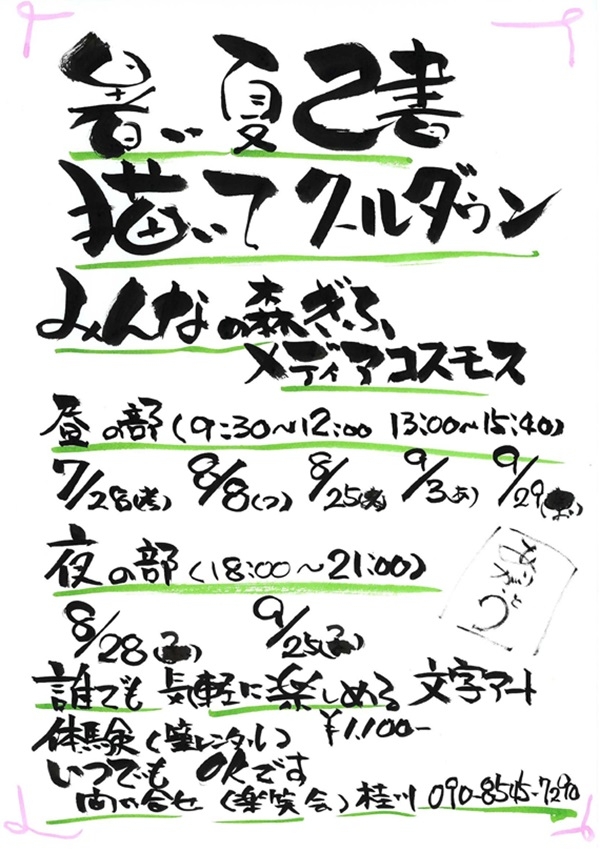 暑い夏己書
描いてクールダウン
みんなの森ぎふ
メディアコスモス
昼の部(9:30~12:00 13:00~15:40)
7/28 8/8 8/25 9/3 9/29
夜の部(18:00~21:00)
8/28 9/25
ありがとう
誰でも気軽に楽しめる文字アート
体験(筆レンタル) ¥1,100-
いつでもOKです
問い合せ(楽笑会)桂川 090-8545-7290